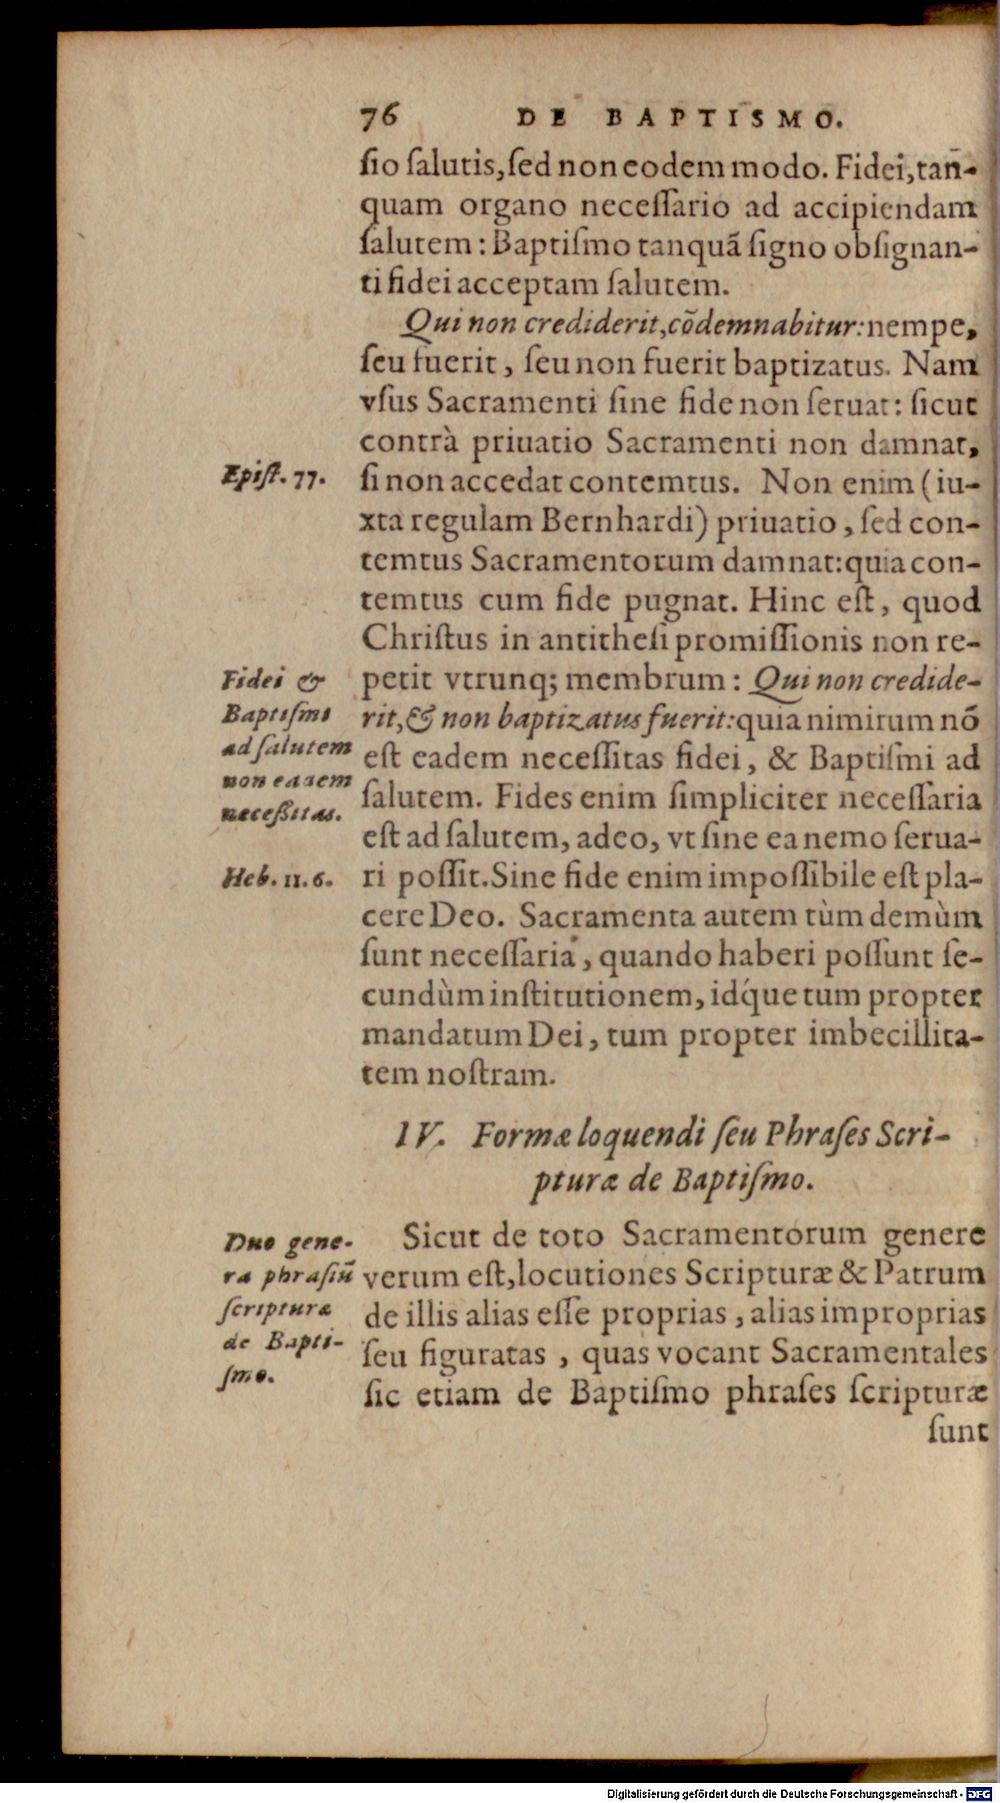 76 DE BAPTISMO.
ſio ſalutis, ſed non eodem modo. Fidei, tañ-
quam organo neceſſario ad accipiendam
ſalutem: Baptiſmo tanquã ſigno obſignan-
ti fidei acceptam ſalutem.
Qui non crediderit, cõdemnabitur: nempe,
ſeu fuerit, ſeu non fuerit baptizatus. Nam
vſus Sacramenti ſine fide non ſeruat: ſicut
contrà priuatio Sacramenti non damnat,
Epiſt. 77.
ſi non accedat contemtus. Non enim (iu-
xta regulam Bernhardi) priuatio, ſed con-
temtus Sacramentorum damnat: quia con-
temtus cum fide pugnat. Hinc eſt, quod
Chriſtus in antitheſi promiſſionis non re-
Fidei &
Baptiſmi
ad ſalutem
non eadem
neceßitas.
petit vtrunq; membrum: Qui non credide-
rit, & non baptizatus fuerit: quia nimirum nõ
eſt eadem neceſſitas fidei, & Baptiſmi ad
ſalutem. Fides enim ſimpliciter neceſſaria
eſt ad ſalutem, adeo, vt ſine ea nemo ſerua-
Heb. 11. 6.
ri poſſit. Sine fide enim impoſſibile eſt pla-
cere Deo. Sacramenta autem tùm demùm
ſunt neceſſaria, quando haberi poſſunt ſe-
cundùm inſtitutionem, id́que tum propter
mandatum Dei, tum propter imbecillita-
tem noſtram.
IV. Formæ loquendi ſeu Phraſes Scri-
pturæ de Baptiſmo.
Duo gene-
ra phraſiũ
ſcripturæ
de Bapti-
ſmo.
Sicut de toto Sacramentorum genere
verum eſt, locutiones Scripturæ & Patrum
de illis alias eſſe proprias, alias improprias
ſeu figuratas, quas vocant Sacramentales
ſic etiam de Baptiſmo phraſes ſcripturæ
ſunt
Digitalisierung gefördert durch die Deutsche Forschungsgemeinschaft - DFG